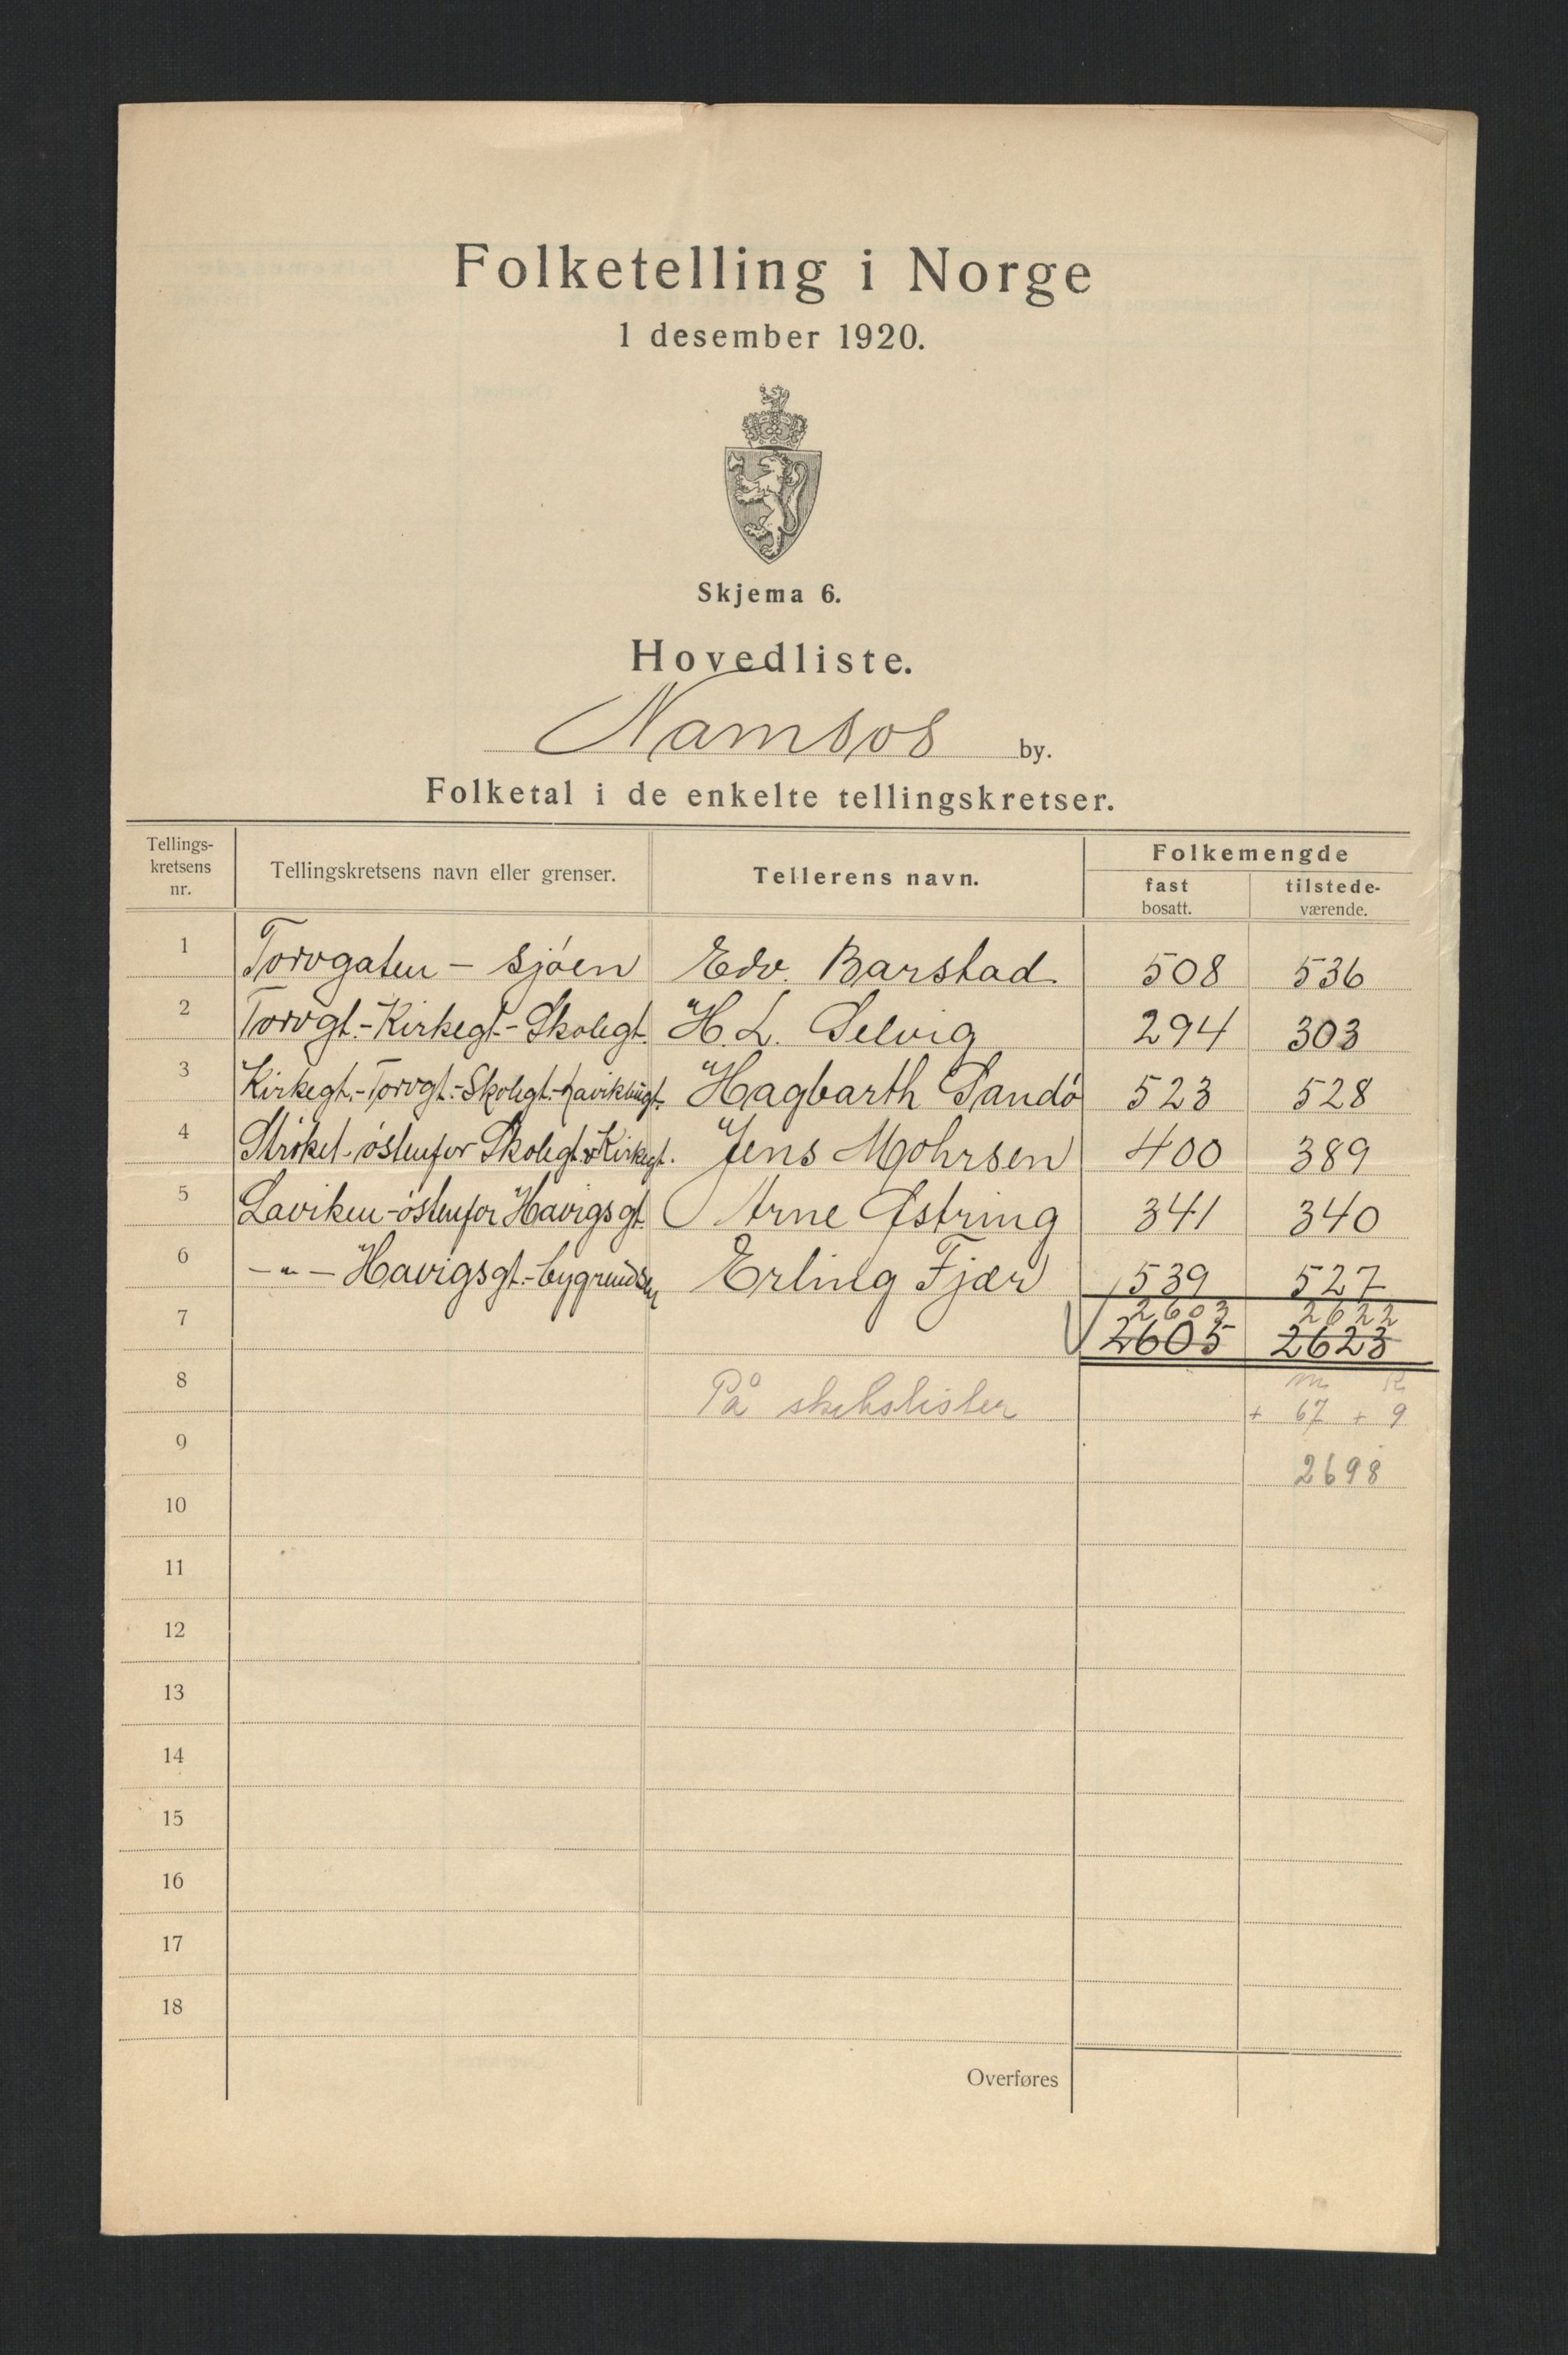 Folketelling i Norge
1 desember 1920.
Skjema 6.
Hovedliste.
Namsos by.
Folketal i de enkelte tellingskretser.
Tellings-kretsens nr. Tellingskretsens navn eller grenser. Tellerens navn. Folkemengde
fast bosatt. tilstede-værende.
1 Torvgaten - Sjøen Edv. Barstad 508 536
2 Torvgt.-Kirkegt.-Skolegt. H. L. Selvig 294 303
3 Kirkegt.-Torvgt.-Skolegt.-Lavikbugt. Hagbarth Sandö 523 528
4 Strøket østenfor Skolegt. & Kirkegt. Jens Mohrsen 400 389
5 Laviken-østenfor Havigsgt. Arne Østring 341 340
6 -"- Havigsgt.-bygrendsen Erling Fjær 539 527
2603 2622
7 2605 2623
m k
8 På skibslister + 67 + 9
9 2698
10
11
12
13
14
15
16
17
18
Overføres